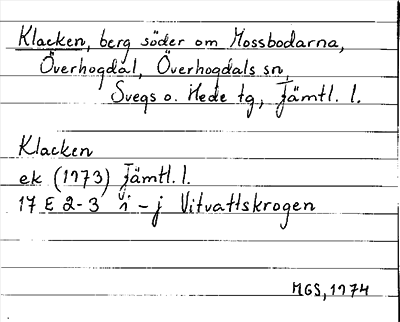 Klacken, berg söder om Mossbodarna,
Överhogdal, Överhogdals sn,
Svegs o. Hede tg, Jämtl. l.
Klacken
ek (1973) Jämtl. l.
17 E 2-3 i - j Vitvattskrogen
MGS, 1974